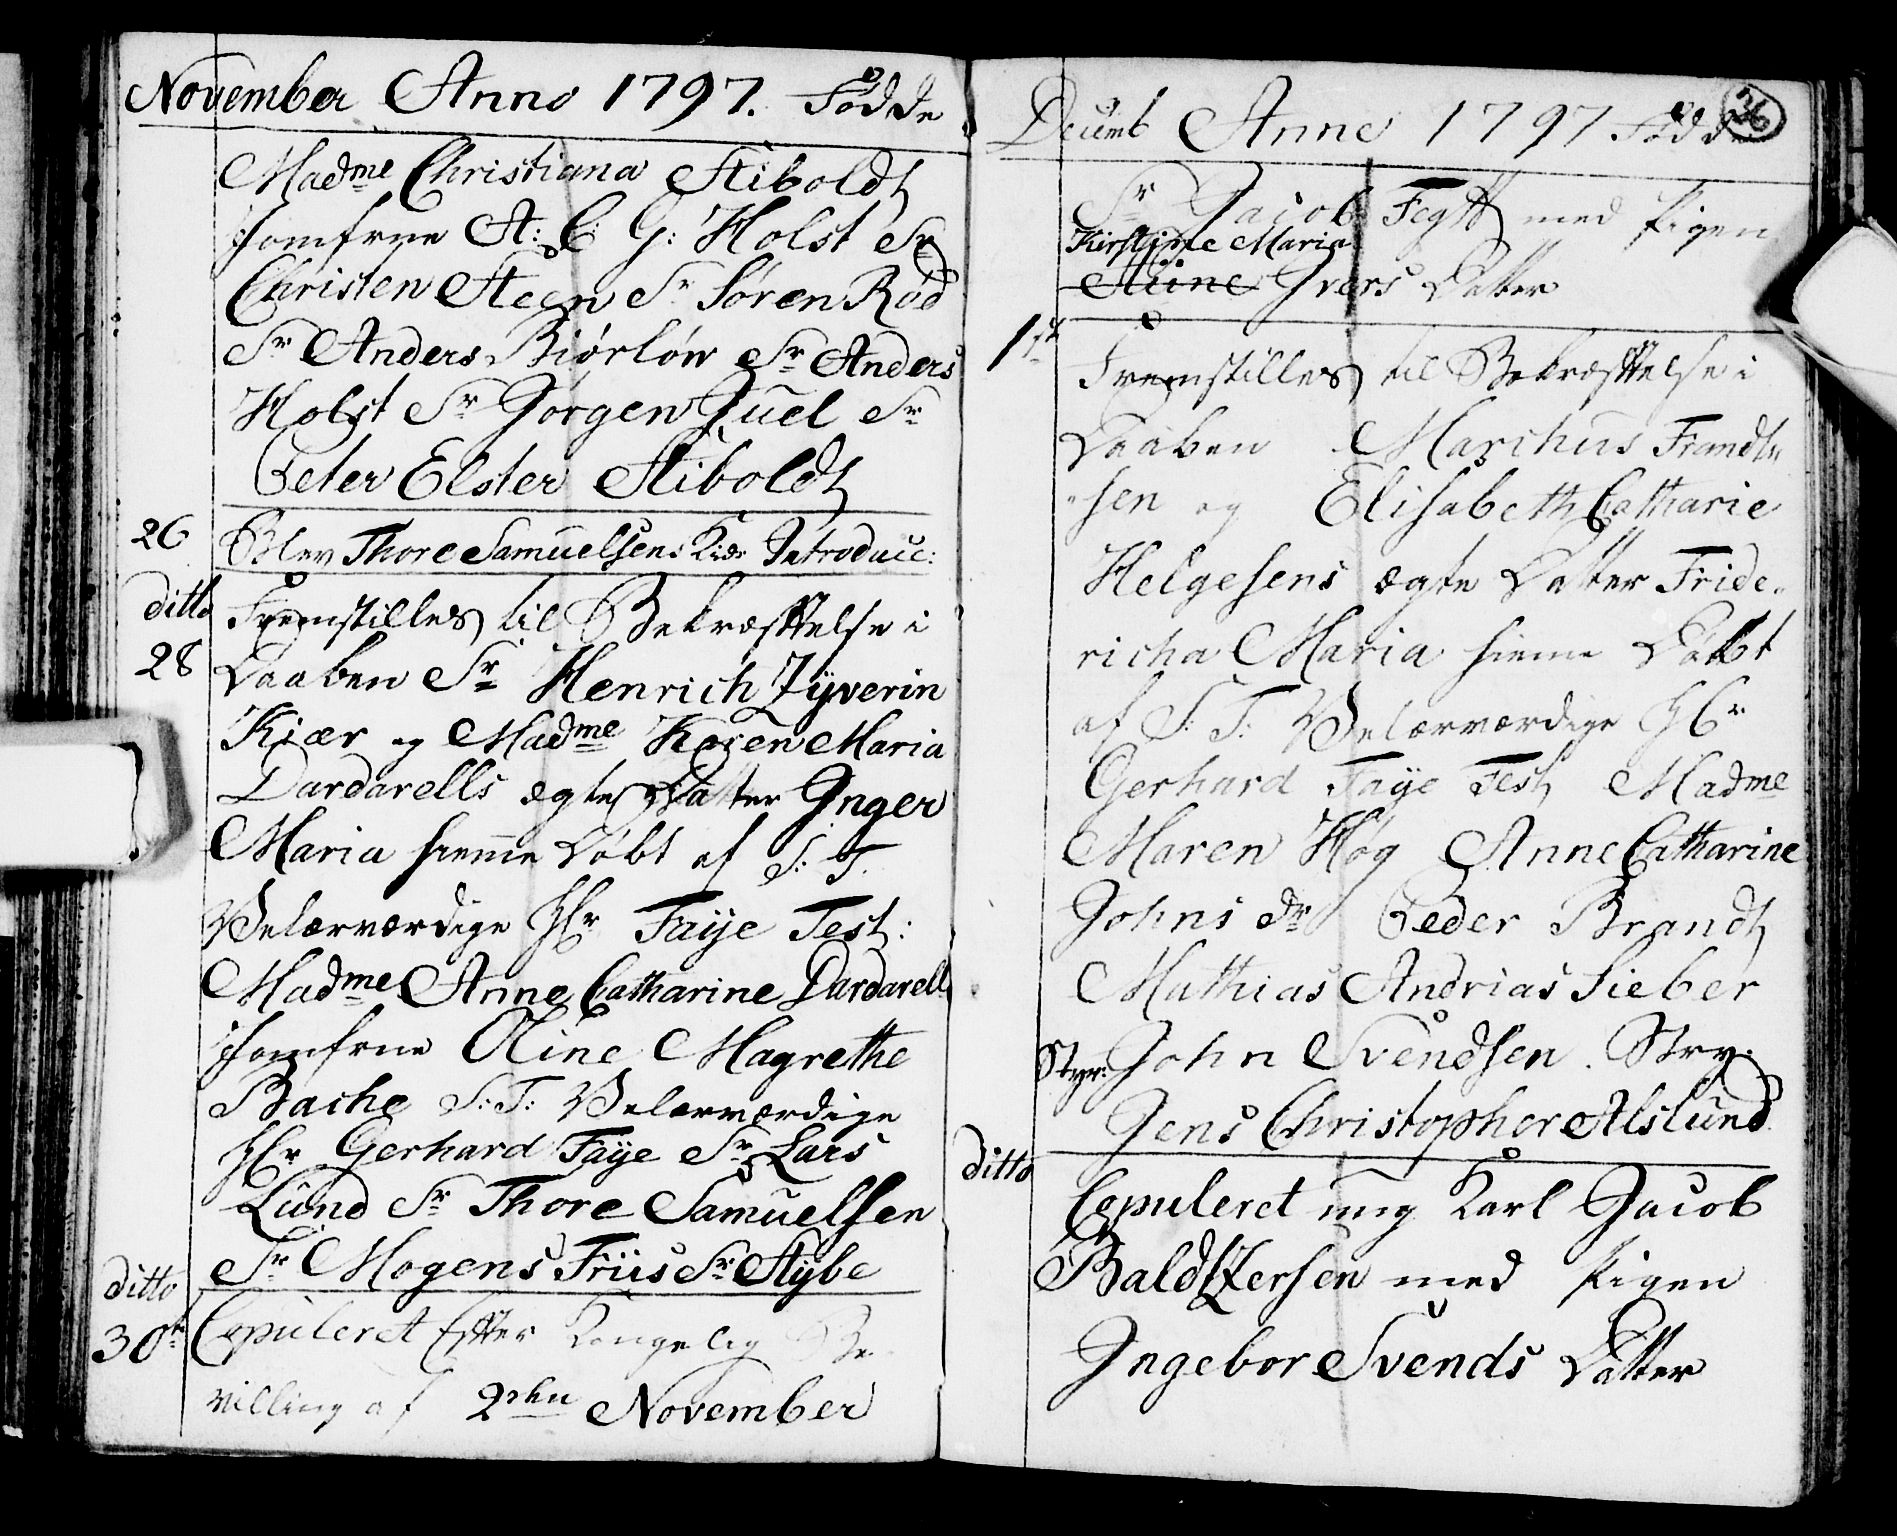 November Anno 1797. Fødde
Madme Christiana Stiboldt
Jomfrue A: C: G: Holst Sr
Christen Steen Sr Søren Rød
Sr Anders Biørløw Sr Anders
Holst Sr Jørgen Juel Sr
Peter Elster Stiboldt
26 Blev Thore Samuelsens Kiær Introduce:
ditto Fremstilles til Bekræftelse i
28 Daaben Sr Henrich Zÿverin
Kiær og Madme Karen Maria
Dardarells ægte Datter Inger
Maria hieme Døbt af S: T.
Velærværdige Hr Faÿe Test:
Madme Anne Catharine Dardarell
Jomfrue Oline Magrethe
Bache S: T: Velærværdige
Hr Gerhard Faÿe Sr Lars
Lund Sr Thore Samuelsen
Sr Mogens Friis Sr Stÿbe
ditto
30te Copuleret Efter Kongelig Be
villing af 2den November
36
Decemb Anno 1797 Fødde
Sr Jacob med Pigen
Kirstine Maria
Stine Ivers Datter
1ste Fremstilles til Bekræftelse i
Daaben Marchus Frandt
sen og Elisabeth Catharie
Helgesens ægte Datter Fride
richa Maria hieme Døbt
af S: T: Velærværdige Hr
Gerhard Faÿe Test Madme
Maren Høg Anne Catharine
Johns dr Peder Brandt
Mathias Andrias Sieber
Styr: John Svendsen. Stry:
Jens Christopher Alslund
ditto
Copuleret ung Karl Jacob
Baldtzersen med Pigen
Ingebor Svends Datter